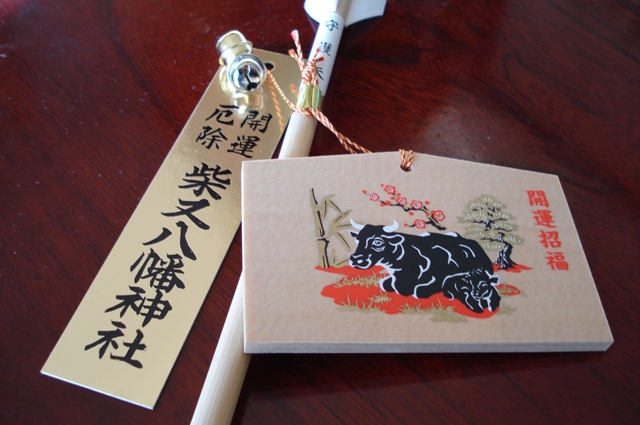 開運
厄除
柴又八幡神社
守護矢
開運招福